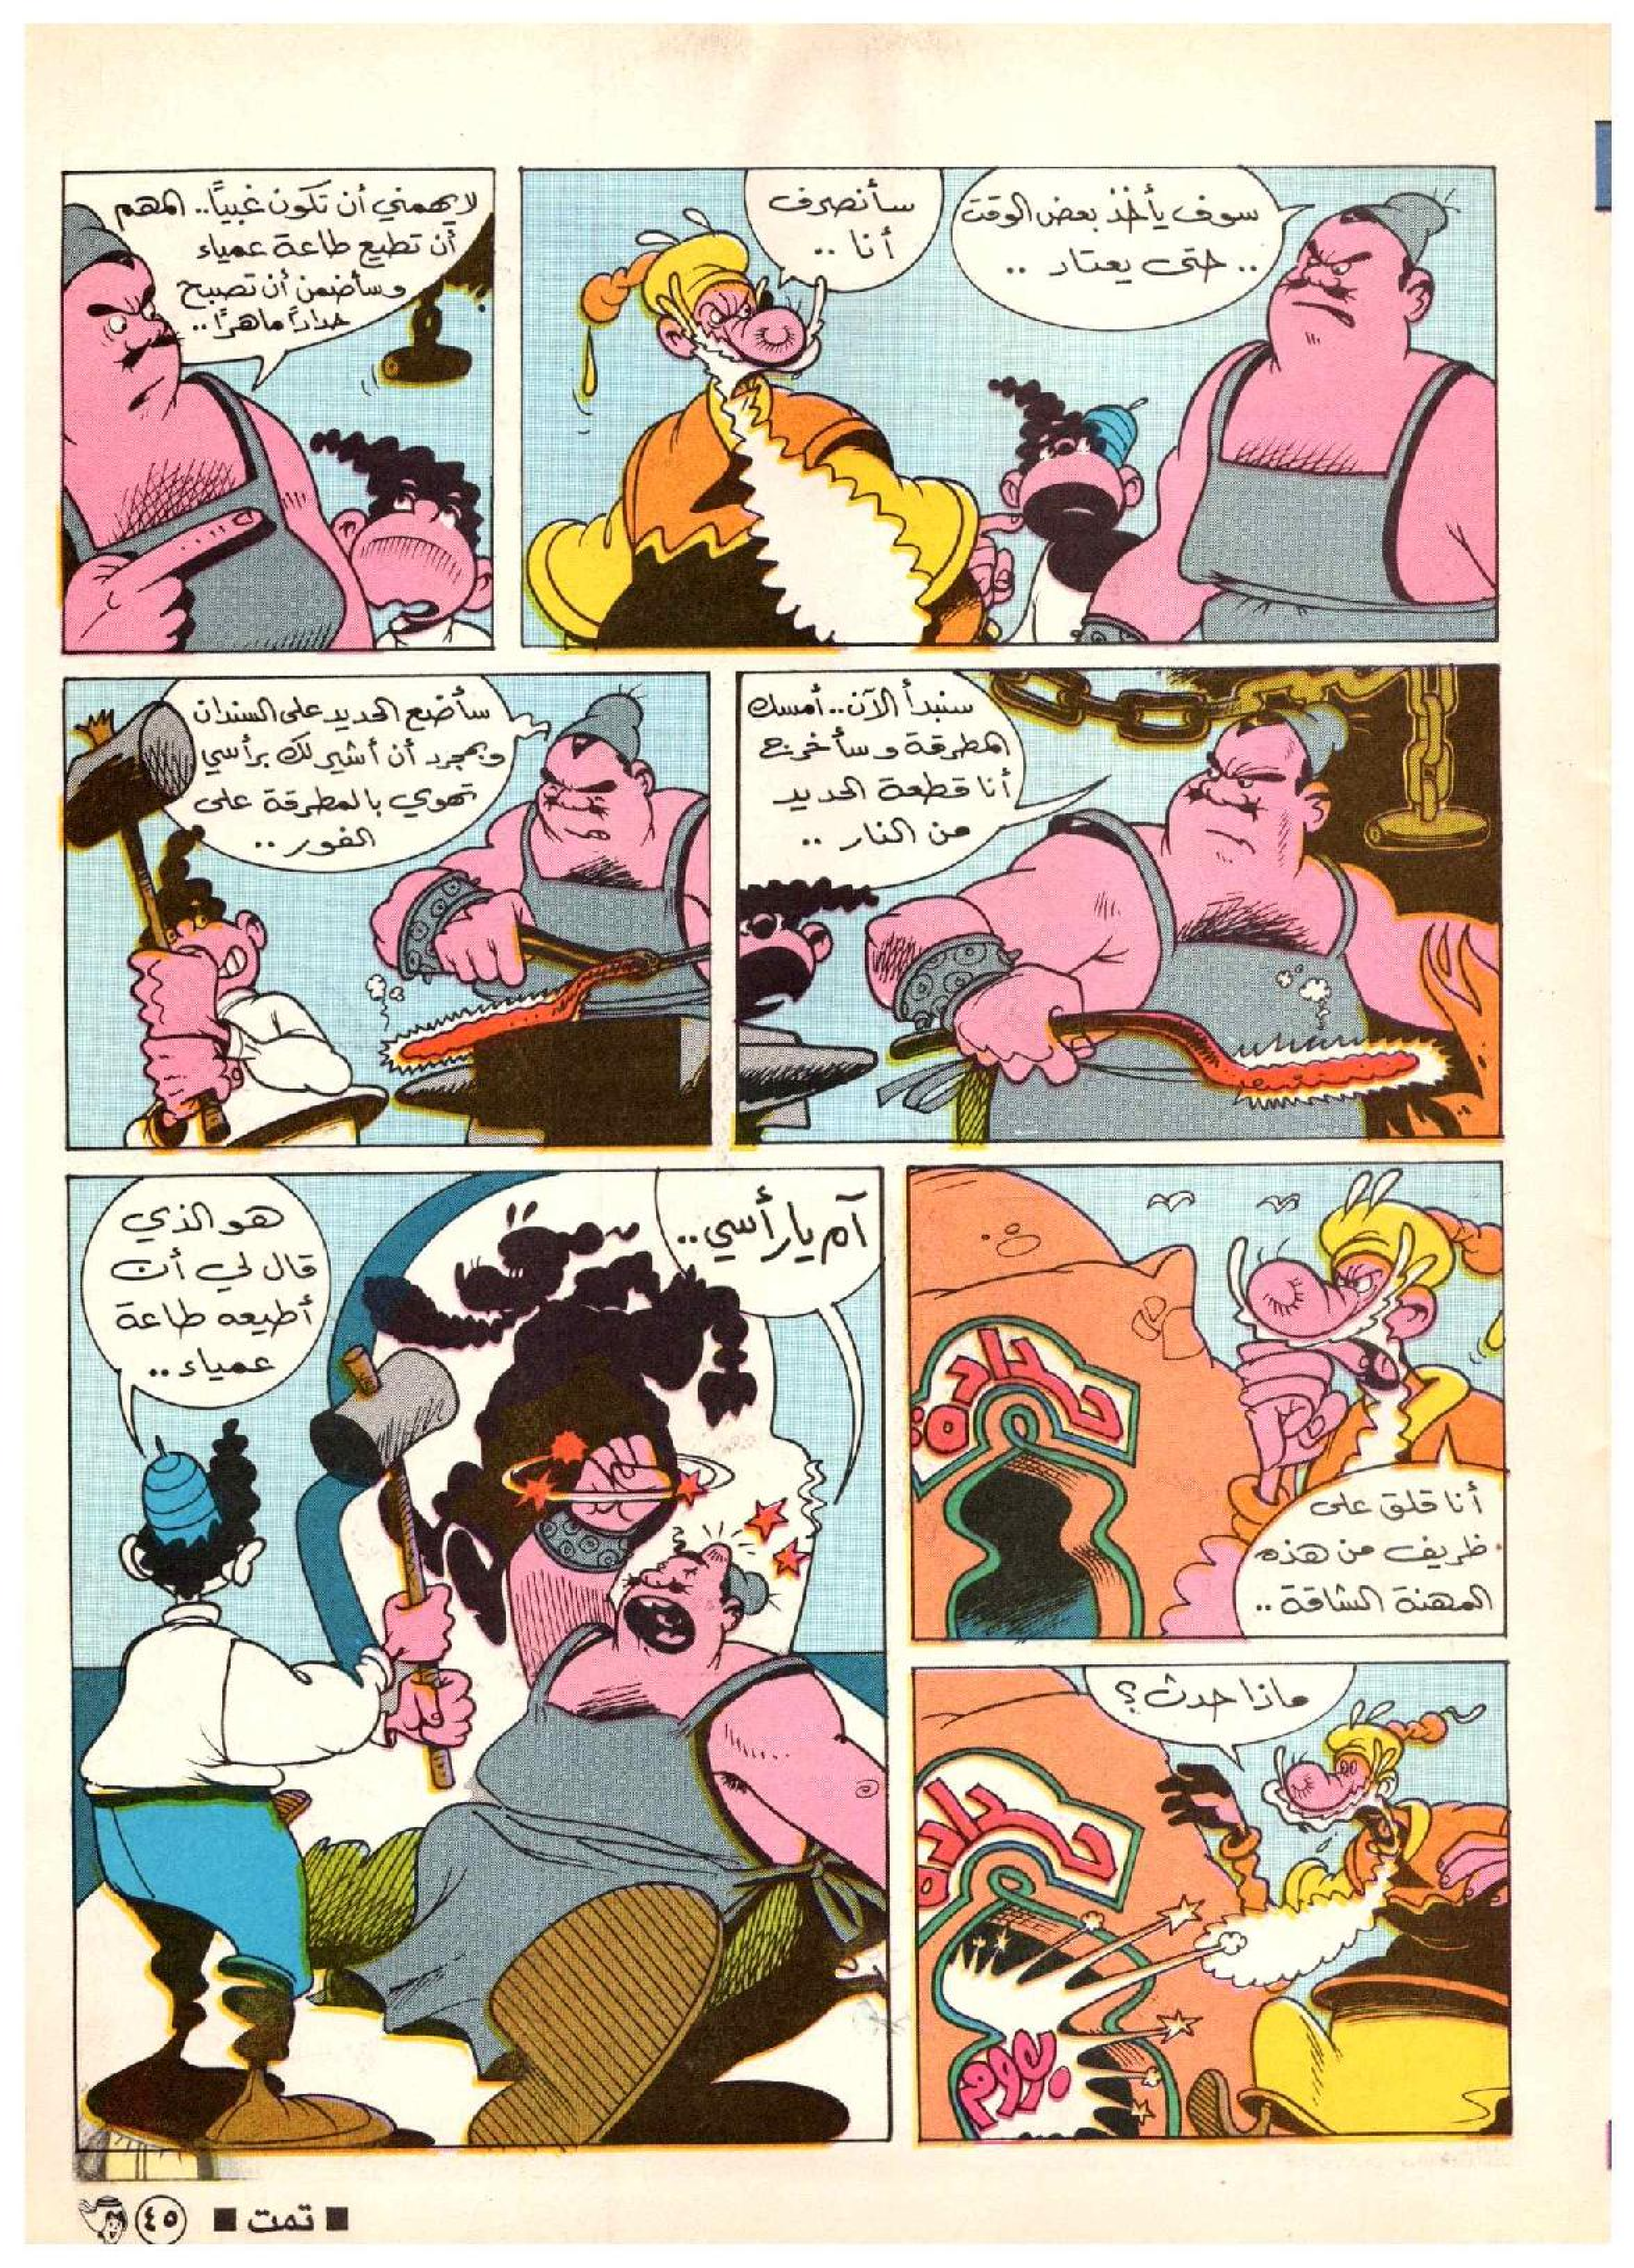 سوف يأخذ بعض الوقت
.. حتى يعتاد ..
سأنصرف
أنا ..
لا يهمني أن تكون غبيًا.. المهم
أن تطيع طاعة عمياء
وسأضمن أن تصبح
حدادًا ماهرًا ..
سنبدأ الآن.. أمسك
المطرقة وسأخرج
أنا قطعة الحديد
من النار ..
سأضع الحديد على السندان
وبمجرد أن أشير لك برأسي
تهوي بالمطرقة على
الفور ..
حدادة
أنا قلق على
ظريف من هذه
المهنة الشاقة ..
ماذا حدث؟
حدادة
بووم
آم يا رأسي ..
هو الذي
قال لي أن
أطيعه طاعة
عمياء ..
■ تمت ■
٤٥